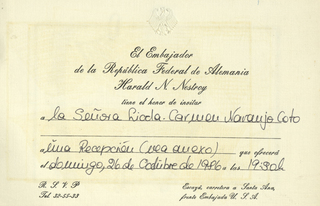 El Embajador
de la República Federal de Alemania
Harald N. Nestroy
tiene el honor de invitar
a la Señora Licda. Carmen Naranjo Coto
a una Recepción (vea anexo) que ofrecerá
el domingo, 26 de Octubre de 1986 a las 19:30h.
R. S. V. P. Escazú, carretera a Santa Ana,
Tel. 32-55-33 frente Embajada U. S. A.